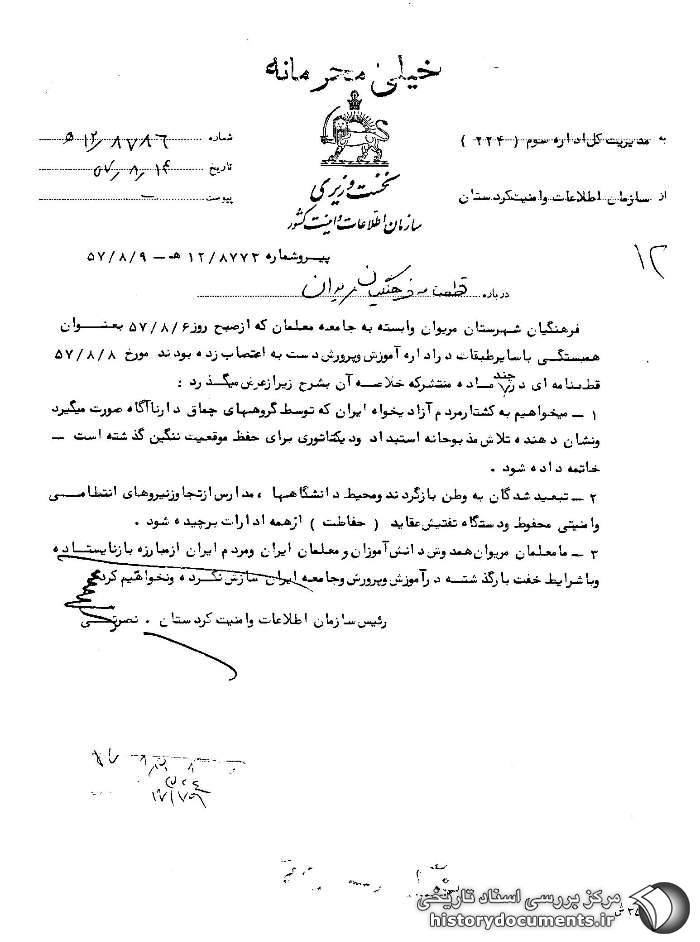 خیلی محرمانه
به مدیریت کل اداره سوم ( ۲۲۴ )
از سازمان اطلاعات وامنیت کردستان
نخست وزیری
سازمان اطلاعات و امنیت کشور
شماره ۱۲/۸۷۸۶ ه
تاریخ ۵۷/۸/۱۴
پیوست —
۱۲
پیروشماره ۱۲/۸۷۷۳ هـ – ۵۷/۸/۹
درباره قطعنامه فرهنگیان مریوان
فرهنگیان شهرستان مریوان وابسته به جامعه معلمان که ازصبح روز ۵۷/۸/۶ بعنوان
همبستگی باسایرطبقات دراداره آموزش وپرورش دست به اعتصاب زده بودند مورخ ۵۷/۸/۸
قطعنامه ای در چند ماده منتشرکه خلاصه آن بشرح زیرازعرض میگذرد :
۱ – میخواهیم به کشتارمردم آزادیخواه ایران که توسط گروههای چماق دارناآگاه صورت میگیرد
ونشان دهنده تلاش مذبوحانه استبداد ودیکتاتوری برای حفظ موقعیت ننگین گذشته است –
خاتمه داده شود .
۲ – تبعید شدگان به وطن بازگردند ومحیط دانشگاهها ، مدارس ازتجاوزنیروهای انتظامی
وامنیتی محفوظ ودستگاه تفتیش عقاید ( حفاظت ) ازهمه ادارات برچیده شود .
۳ – مامعلمان مریوان همدوش دانش آموزان ومعلمان ایران ومردم ایران ازمبارزه بازنایستاده
وباشرایط خفت بارگذشته درآموزش وپرورش وجامعه ایران سازش نکرده ونخواهیم کرد
رئیس سازمان اطلاعات وامنیت کردستان . نصرتی
مرکز بررسی اسناد تاریخی
historydocuments.ir